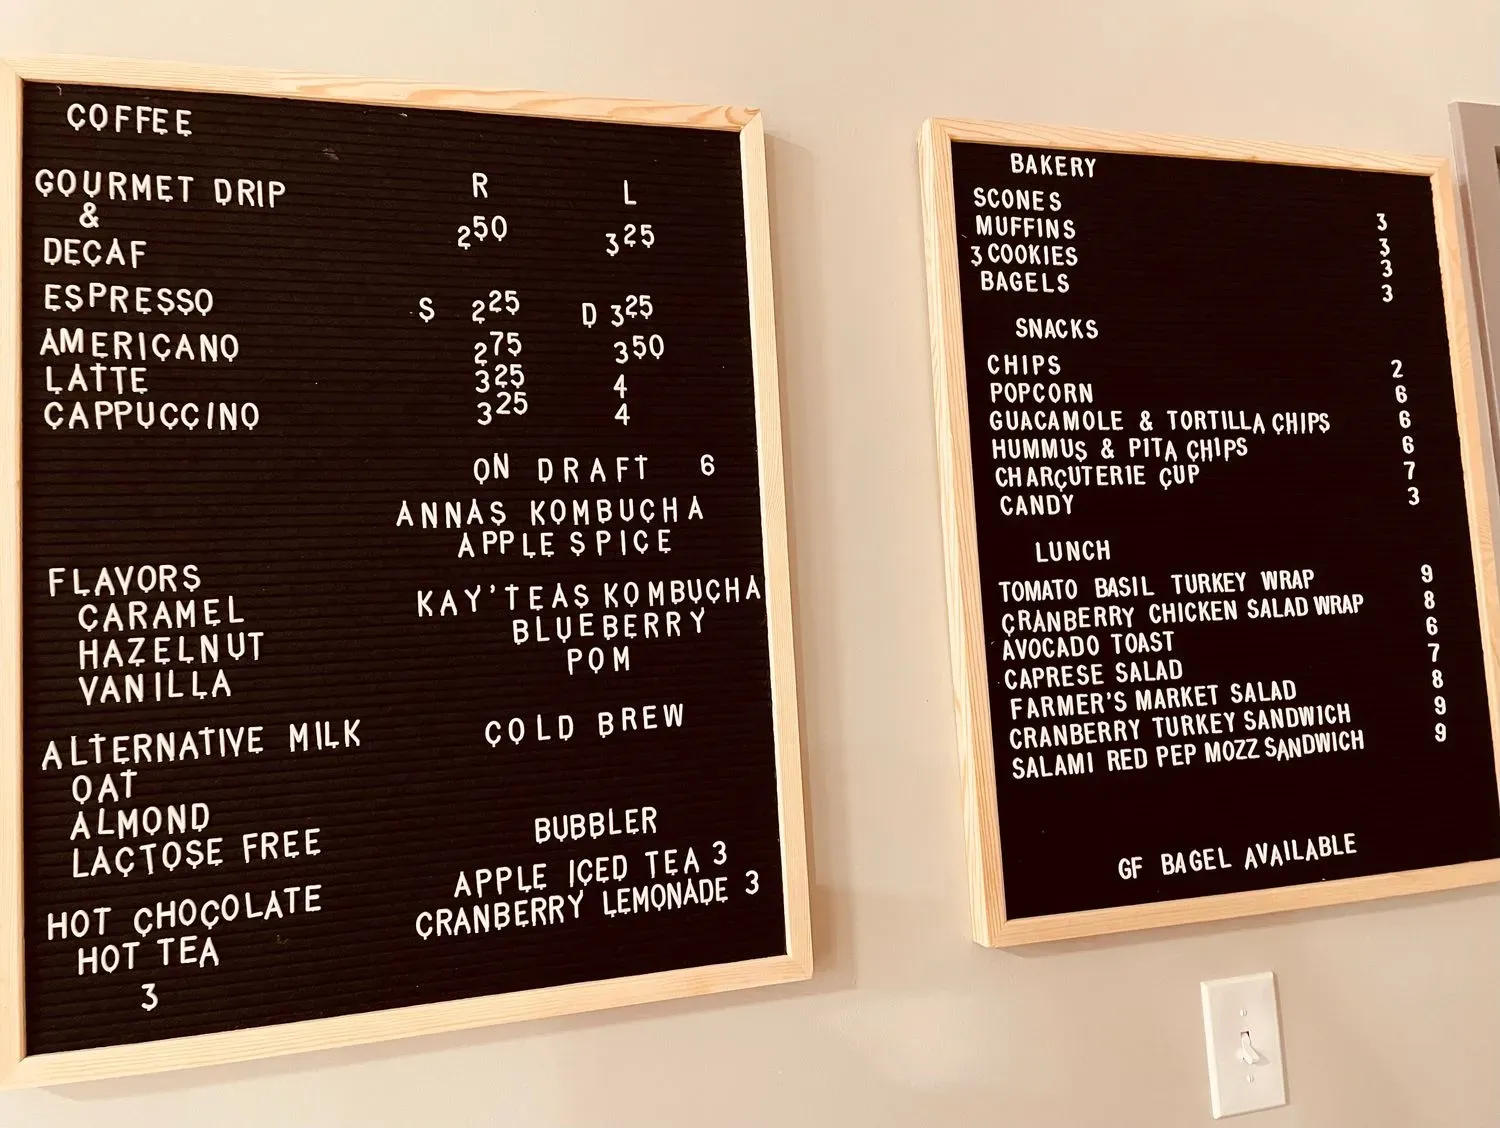 COFFEE
GOURMET DRIP R L
&
DECAF 2⁵⁰ 3²⁵
ESPRESSO S 2²⁵ D 3²⁵
AMERICANO 2⁷⁵ 3⁵⁰
LATTE 3²⁵ 4
CAPPUCCINO 3²⁵ 4
ON DRAFT 6
ANNAS KOMBUCHA
APPLE SPICE
KAY'TEAS KOMBUCHA
BLUEBERRY
POM
COLD BREW
FLAVORS
CARAMEL
HAZELNUT
VANILLA
ALTERNATIVE MILK
OAT
ALMOND
LACTOSE FREE
HOT CHOCOLATE
HOT TEA
3
BUBBLER
APPLE ICED TEA 3
CRANBERRY LEMONADE 3
BAKERY
SCONES 3
MUFFINS 3
3 COOKIES 3
BAGELS 3
SNACKS
CHIPS 2
POPCORN 6
GUACAMOLE & TORTILLA CHIPS 6
HUMMUS & PITA CHIPS 6
CHARCUTERIE CUP 7
CANDY 3
LUNCH
TOMATO BASIL TURKEY WRAP 9
CRANBERRY CHICKEN SALAD WRAP 8
AVOCADO TOAST 6
CAPRESE SALAD 7
FARMER'S MARKET SALAD 8
CRANBERRY TURKEY SANDWICH 9
SALAMI RED PEP MOZZ SANDWICH 9
GF BAGEL AVAILABLE